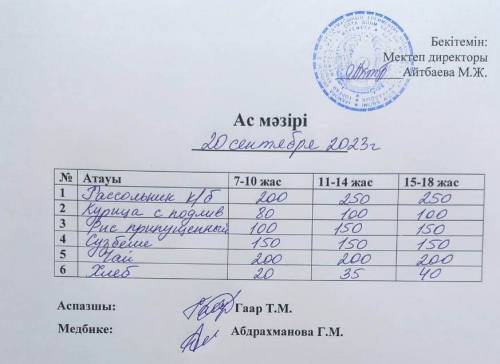 Бекітемін:
Мектеп директоры
Айтбаева М.Ж.
Ас мәзірі
20 сентября 2023г
№ Атауы 7-10 жас 11-14 жас 15-18 жас
1 Рассольник к/б 200 250 250
2 Курица с подлив 80 100 100
3 Рис припущенный 100 150 150
4 Сузбеше 150 150 150
5 Чай 200 200 200
6 Хлеб 20 35 40
Аспазшы: Гаар Т.М.
Медбике: Абдрахманова Г.М.